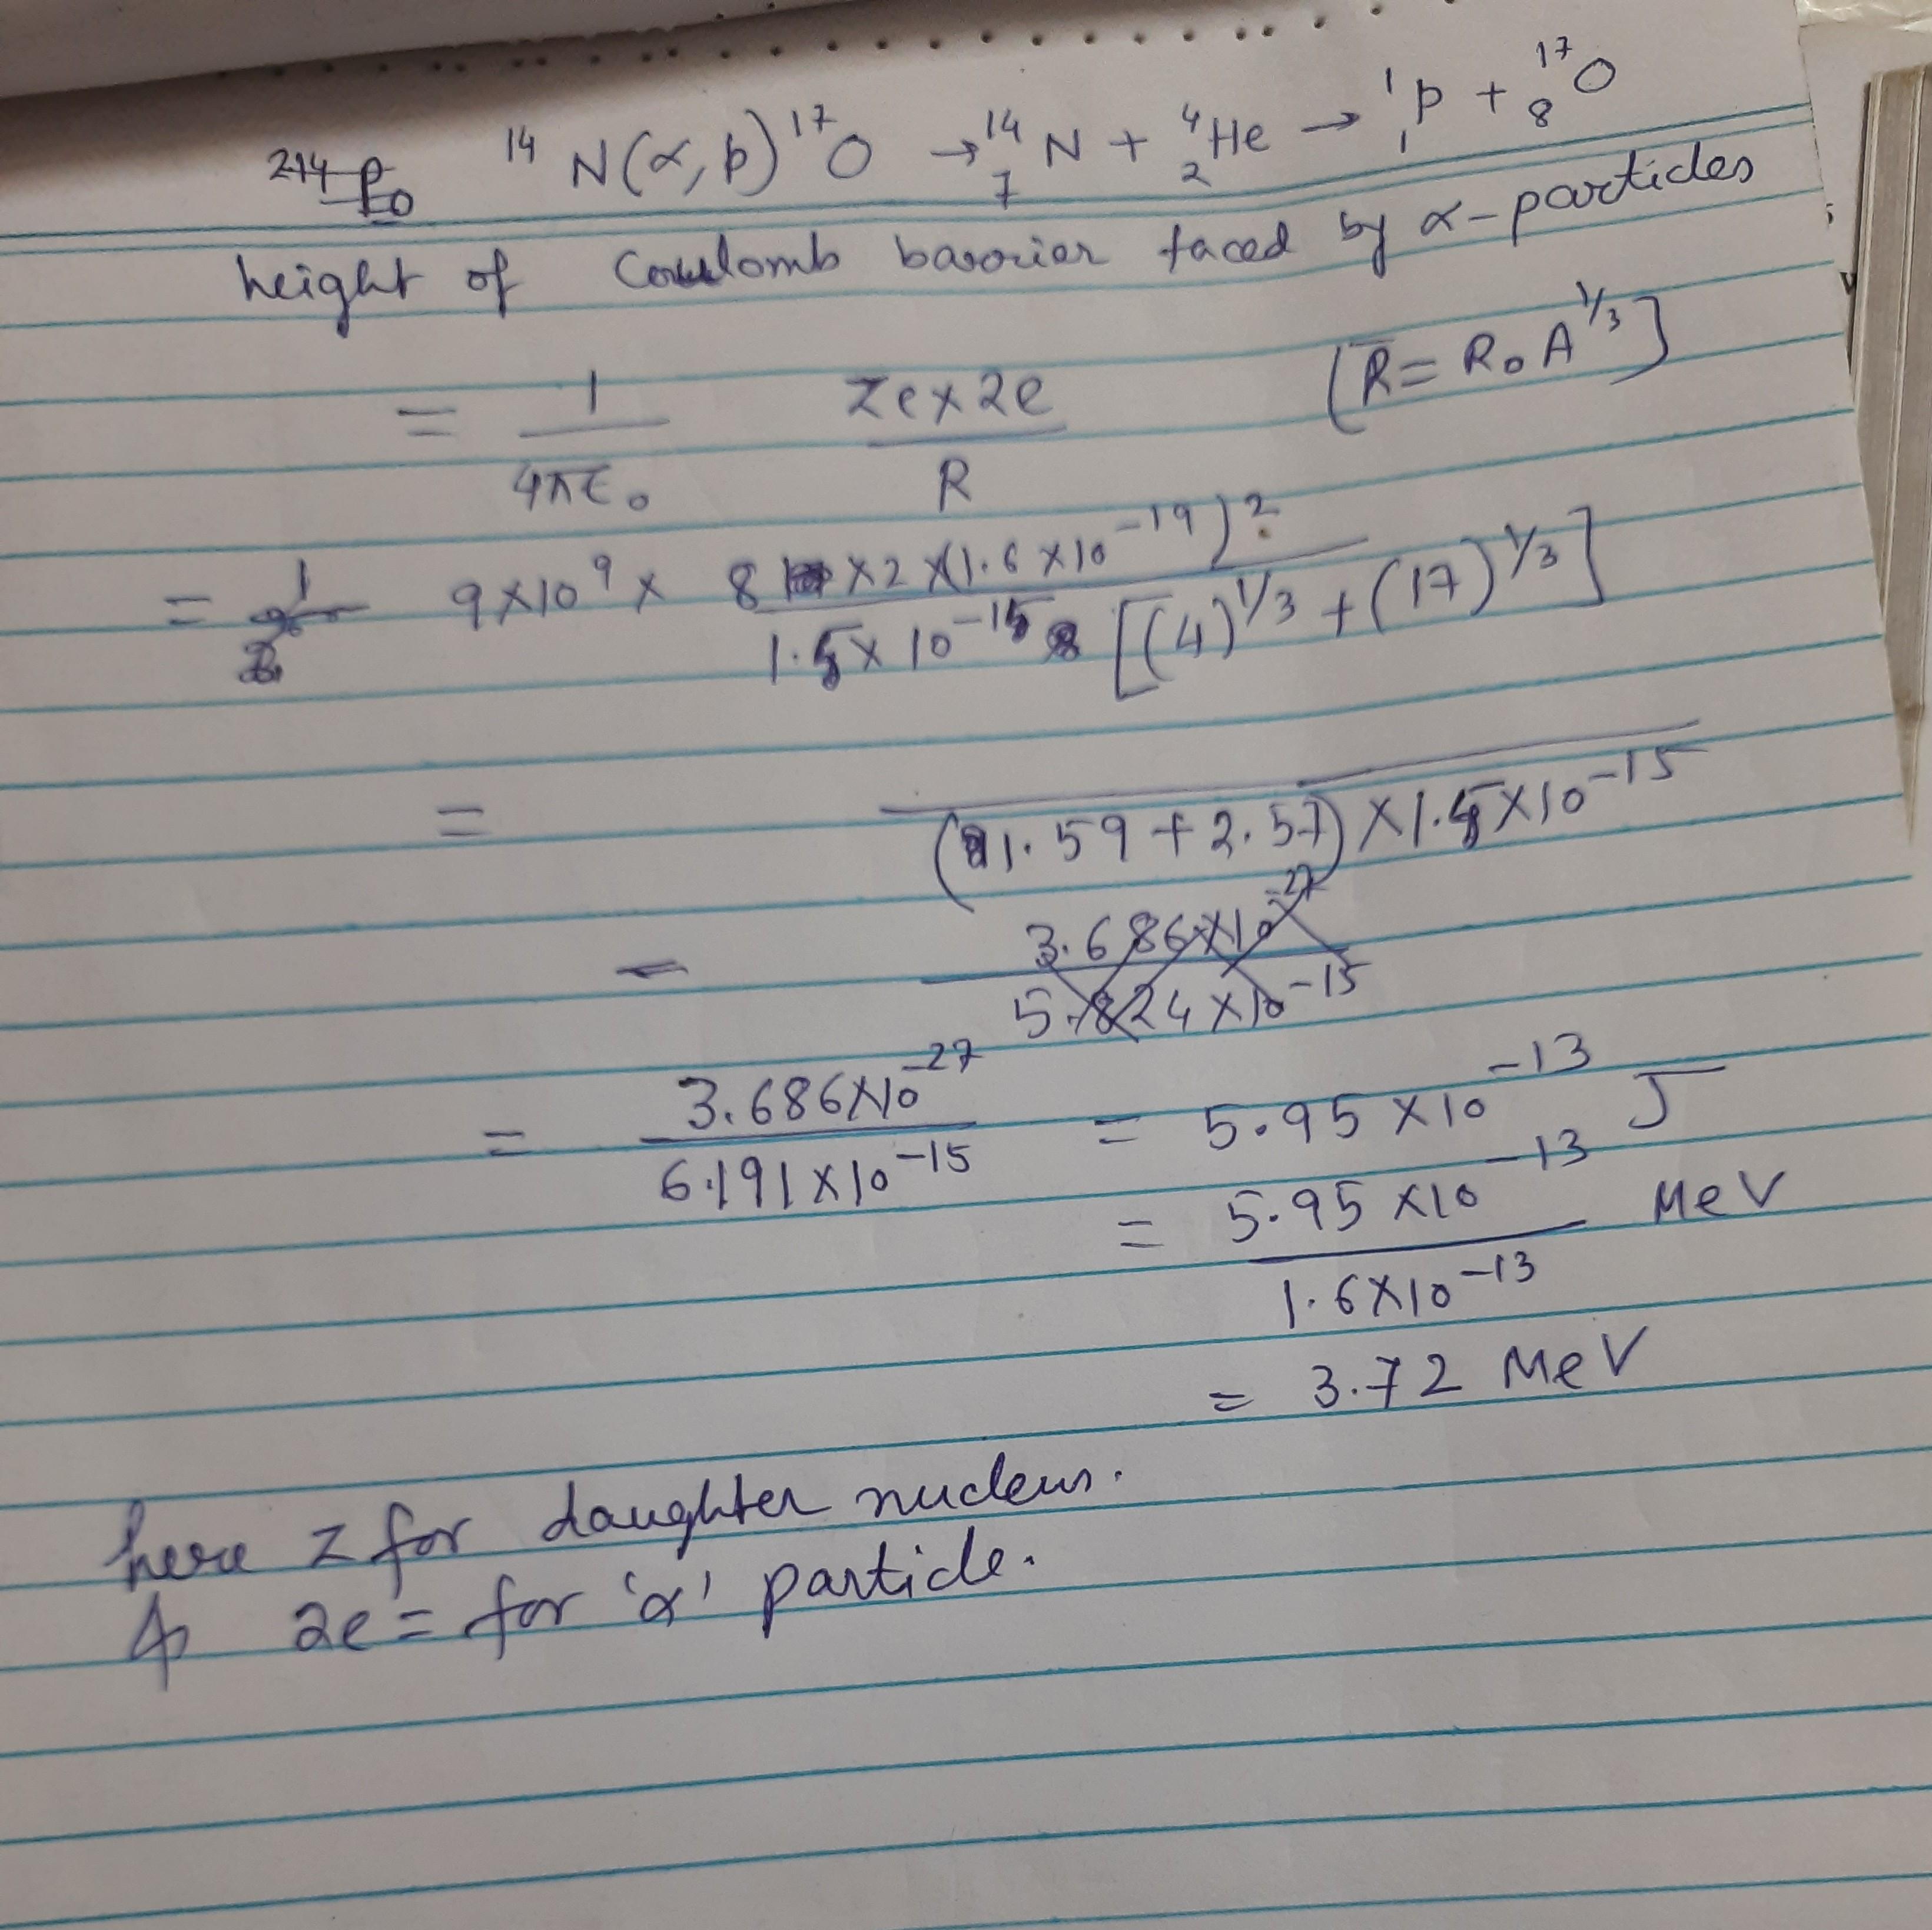 ²¹⁴Po ¹⁴N(α,p)¹⁷O → ¹⁴₇N + ⁴₂He → ¹₁p + ¹⁷₈O
height of Coulomb barrier faced by α-particles
= 1/4πε₀ Ze×2e/R [R = R₀A^1/3]
= 9×10⁹ × 8×2×(1.6×10⁻¹⁹)²/1.5×10⁻¹⁵[(4)^1/3 + (17)^1/3]
= /(1.59+2.57)×1.5×10⁻¹⁵
= 3.686×10⁻²⁷/5.824×10⁻¹⁵
= 3.686×10⁻²⁷/6.191×10⁻¹⁵ = 5.95×10⁻¹³ J
= 5.95×10⁻¹³/1.6×10⁻¹³ MeV
= 3.72 MeV
here z for daughter nucleus.
& 2e = for 'α' particle.